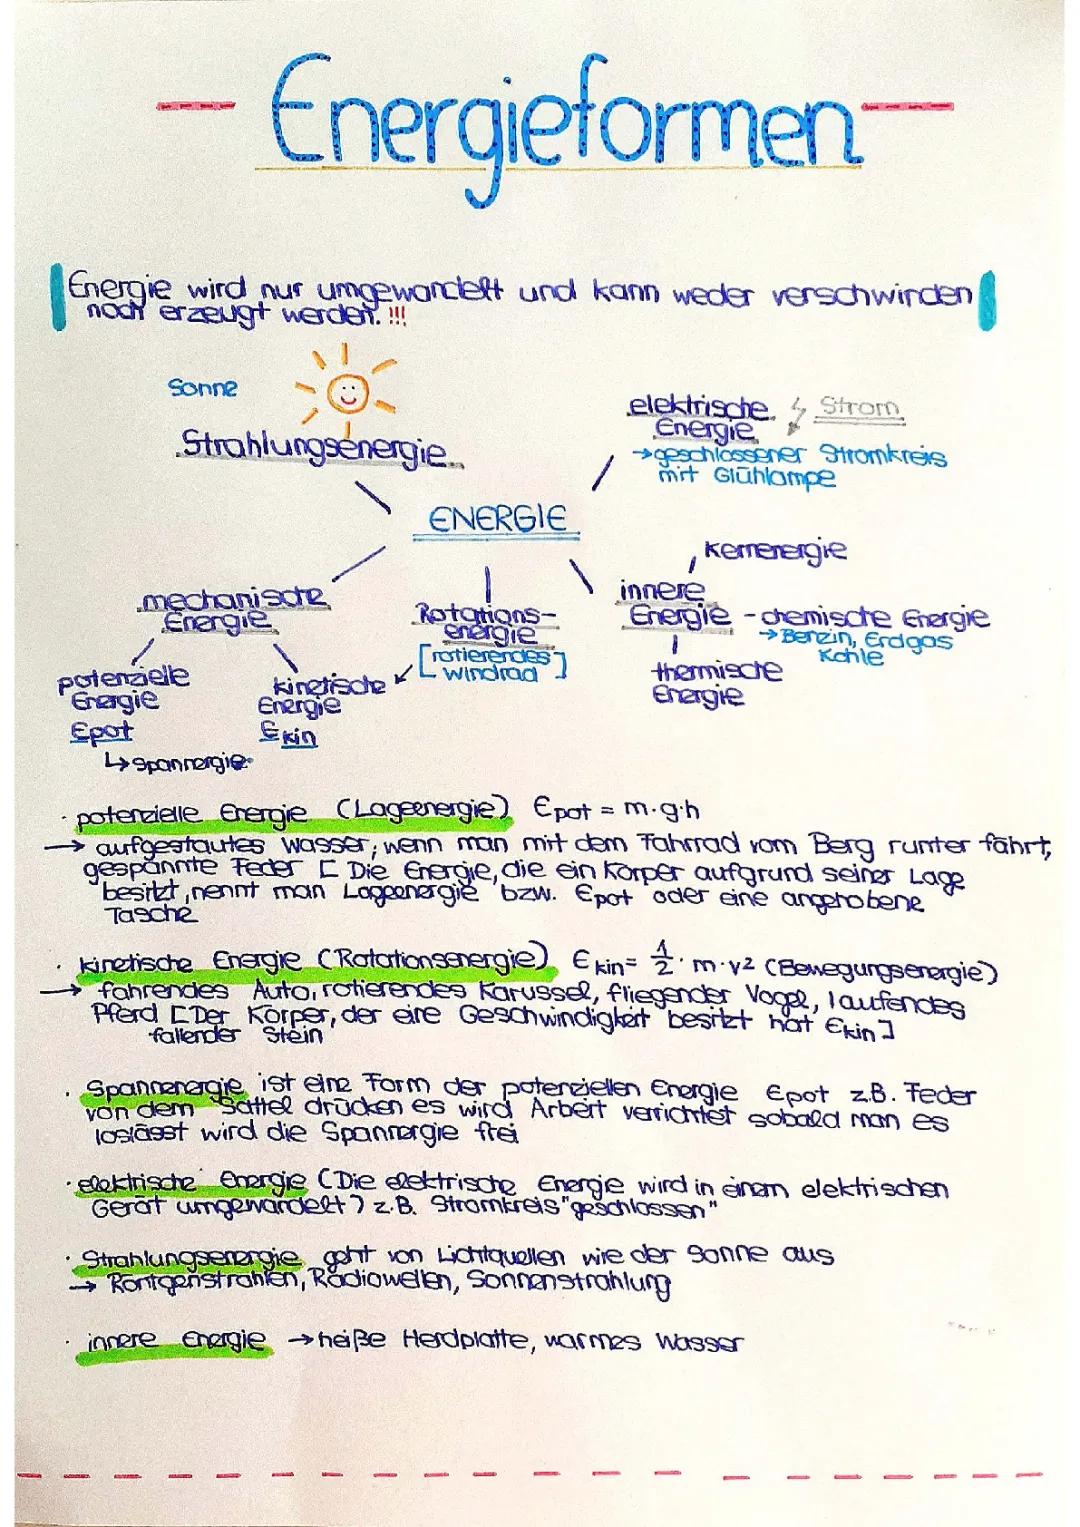 Energieformen
Energie wird nur umgewandelt und kann weder verschwinden
noch erzeugt werden. !!!
Sonne
Strahlungsenergie
elektrische Strom
Energie
→ geschlossener Stromkreis
mit Glühlampe
ENERGIE
Kernenergie
mechanische
Energie
Rotations-
energie
[rotierendes
windrad]
innere
Energie - chemische Energie
→ Benzin, Erdgas
Kohle
thermische
Energie
potenzielle
Energie
Epot
↳ Spannergie
kinetische
Energie
Ekin
· potenzielle Energie (Lageenergie) Epot = m·g·h
→ aufgestautes Wasser, wenn man mit dem Fahrrad vom Berg runter fährt,
gespannte Feder [ Die Energie, die ein Körper aufgrund seiner Lage
besitzt, nennt man Lageenergie bzw. Epot oder eine angehobene
Tasche
· kinetische Energie (Rotationsenergie) Ekin = 1/2 · m·v² (Bewegungsenergie)
→ fahrendes Auto, rotierendes Karussel, fliegender Vogel, laufendes
Pferd [Der Körper, der eine Geschwindigkeit besitzt hat Ekin]
fallender Stein
· Spannenergie ist eine Form der potenziellen Energie Epot z.B. Feder
von dem Sattel drücken es wird Arbeit verrichtet sobald man es
loslässt wird die Spannergie frei
· elektrische Energie (Die elektrische Energie wird in einem elektrischen
Gerät umgewandelt) z.B. Stromkreis "geschlossen"
· Strahlungsenergie geht von Lichtquellen wie der Sonne aus
→ Röntgenstrahlen, Radiowellen, Sonnenstrahlung
· innere Energie → heiße Herdplatte, warmes Wasser